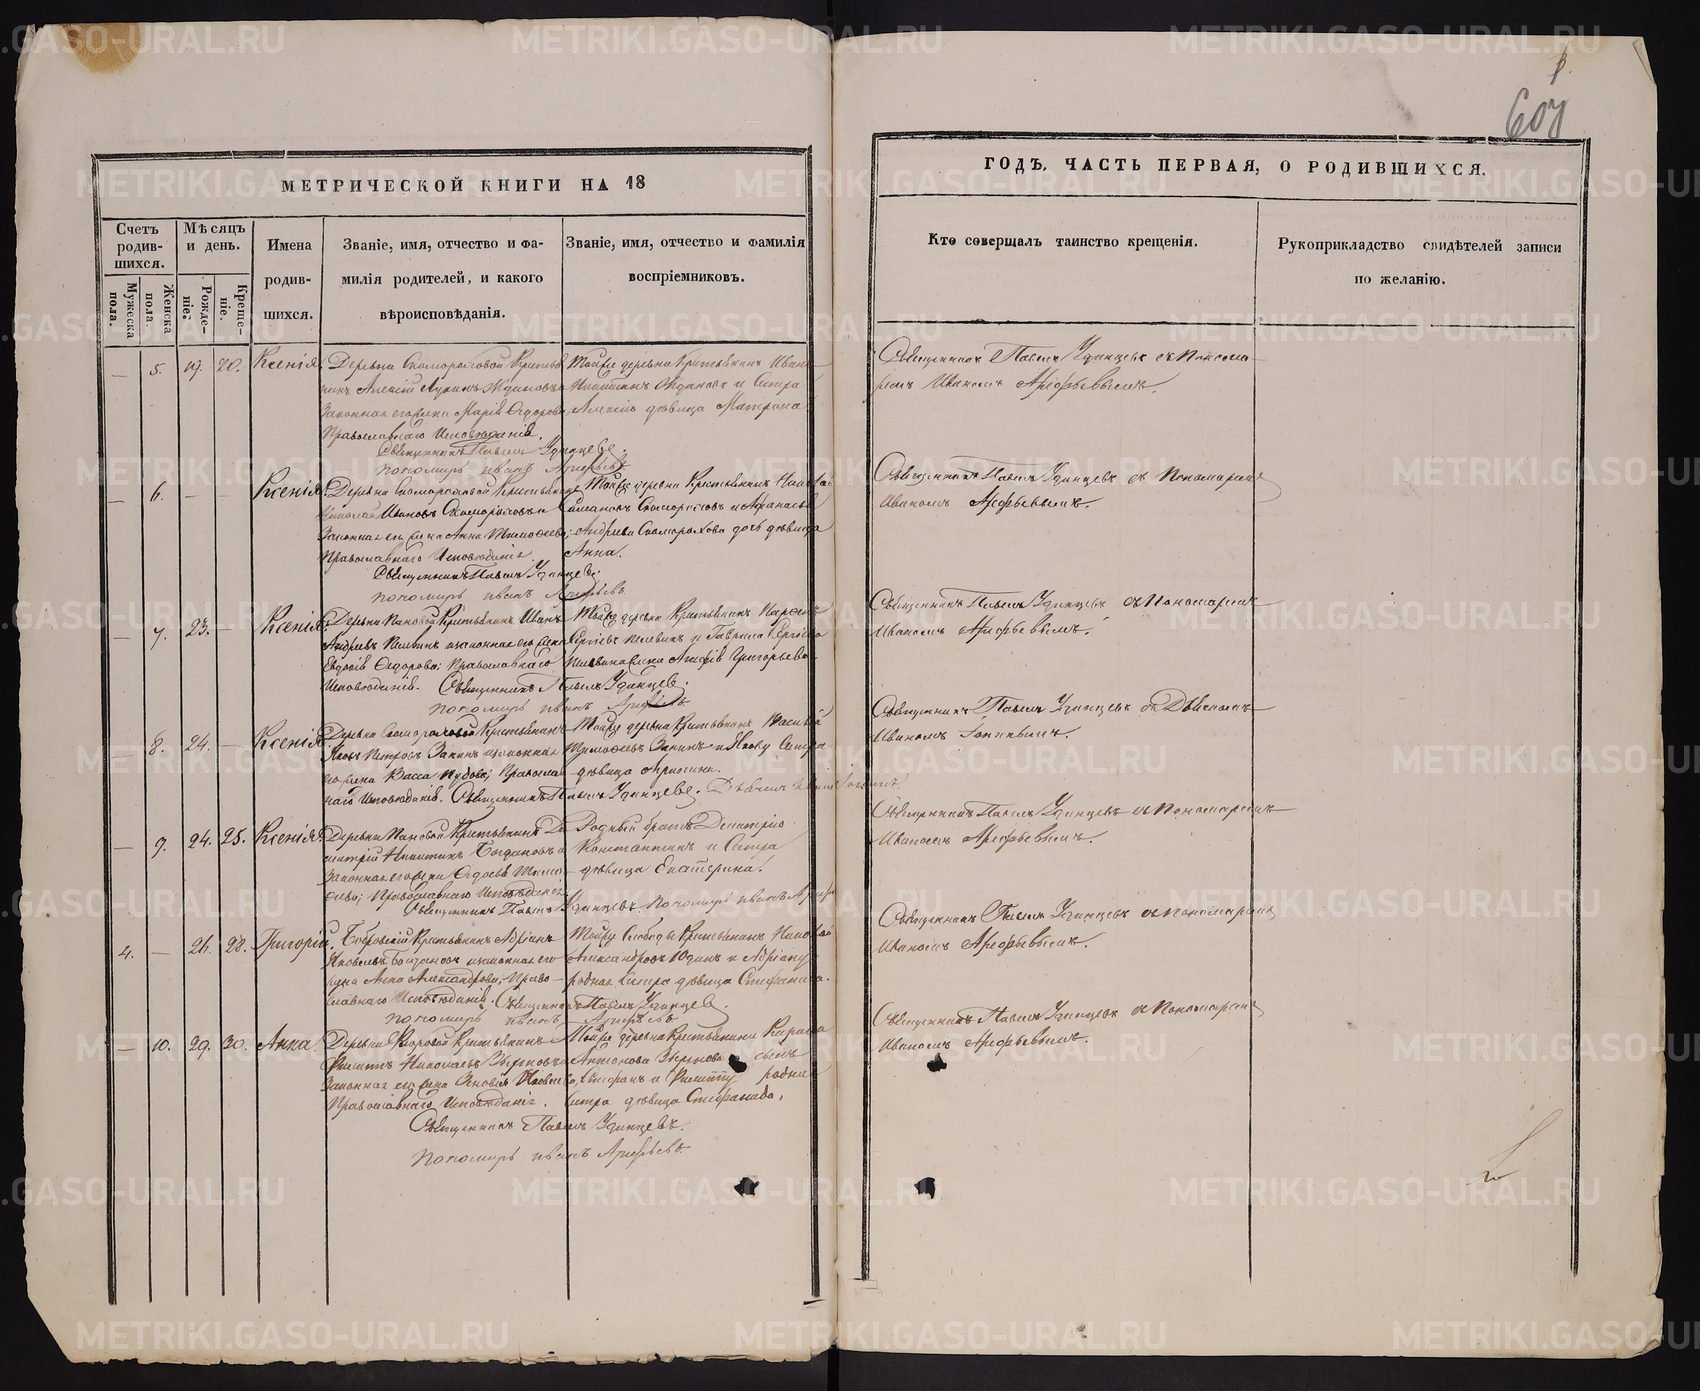 607
МЕТРИЧЕСКОЙ КНИГИ НА 18
ГОДЪ, ЧАСТЬ ПЕРВАЯ, О РОДИВШИХСЯ.
Счетъ родив-шихся.
Мужеска пола.
Женска пола.
Мѣсяцъ и день.
Рожде-ніе.
Креще-ніе.
Имена
родив-
шихся.
Званіе, имя, отчество и фа-
милія родителей, и какого
вѣроисповѣданія.
Званіе, имя, отчество и фамилія
воспріемниковъ.
Кто совершалъ таинство крещенія.
Рукоприкладство свидѣтелей записи
по желанію.
— 5. 19. 20. Ксенія
Деревни Скомороховой Крестья
нинъ Алексій Лукинъ Ждановъ и
законная его жена Марія Ѳедорова
Православнаго Исповѣданія.
Тойже деревни Крестьянинъ Иванъ
Никитинъ Ждановъ и Сестра
Алексію дѣвица Матрона
Священникъ Павелъ Удинцевъ.
пономарь иванъ Арефьевъ
Священникъ Павелъ Удинцевъ съ Понома-
ремъ Иваномъ Арефьевымъ.
— 6. — — Ксенія
Деревни Скомороховой Крестьянинъ
Николай Ивановъ Скомороховъ и
Законная его жена Анна Тимофеева;
Православнаго Исповѣданія
Тойже деревни Крестьянинъ
Скомороховъ и Афанасья
Андреева Скоморохова дочь дѣвица
Анна.
Священникъ Павелъ Удинцевъ.
пономарь иванъ Арефьевъ.
Священникъ Павелъ Удинцевъ съ Пономаремъ
Иваномъ Арефьевымъ.
— 7. 23. — Ксенія
Деревни Пановой Крестьянинъ Иванъ
Андреевъ и законная его жена
Евдокія Ѳедорова; Православнаго
Исповѣданія.
Тойже деревни Крестьянинъ
Сергіевъ и Гаврила Сергіева
жена Григорьева
Священникъ Павелъ Удинцевъ.
пономарь иванъ Арефьевъ
Священникъ Павелъ Удинцевъ съ Пономаремъ
Иваномъ Арефьевымъ.
— 8. 24. — Ксенія
Деревни Скомороховой Крестьянинъ
Яковъ Петровъ Зининъ и законная
его жена Васса Православ
наго Исповѣданія.
Тойже деревни Крестьянинъ Василій
Тимофеевъ Зининъ и Якову Сестра
дѣвица
Священникъ Павелъ Удинцевъ.
Священникъ Павелъ Удинцевъ съ Дьячкомъ
Иваномъ
— 9. 24. 25. Ксенія
Деревни Пановой Крестьянинъ Ди
митрій Никитинъ Богдановъ и
Законная его жена Тимо
феева; Православнаго Исповѣданія
Родный братъ Димитрію
Константинъ и Сестра
дѣвица Екатерина.
Священникъ Павелъ Удинцевъ. пономарь иванъ
Священникъ Павелъ Удинцевъ съ Пономаремъ
Иваномъ Арефьевымъ.
4. — 26. 28. Григорій.
Бобровскій Крестьянинъ Адріанъ
Яковлевъ и законная его
жена Анна Александрова; Право-
славнаго Исповѣданія.
Тойже Слободы Крестьянинъ Николай
Александровъ Юдинъ и Адріану
родная Сестра дѣвица Стефанида.
Священникъ Павелъ Удинцевъ.
пономарь иванъ Арефьевъ
Священникъ Павелъ Удинцевъ съ пономаремъ
Иваномъ Арефьевымъ.
— 10. 29. 30. Анна.
Деревни Крестьянинъ
Филиппъ Николаевъ и
законная его жена Яковлева
Православнаго Исповѣданія.
Тойже деревни Крестьянина Кирила
Антонова сынъ
Стефанъ и Филиппу родная
сестра дѣвица Стефанида.
Священникъ Павелъ Удинцевъ.
Пономарь иванъ Арефьевъ
Священникъ Павелъ Удинцевъ съ Пономаремъ
Иваномъ Арефьевымъ.
METRIKI.GASO-URAL.RU